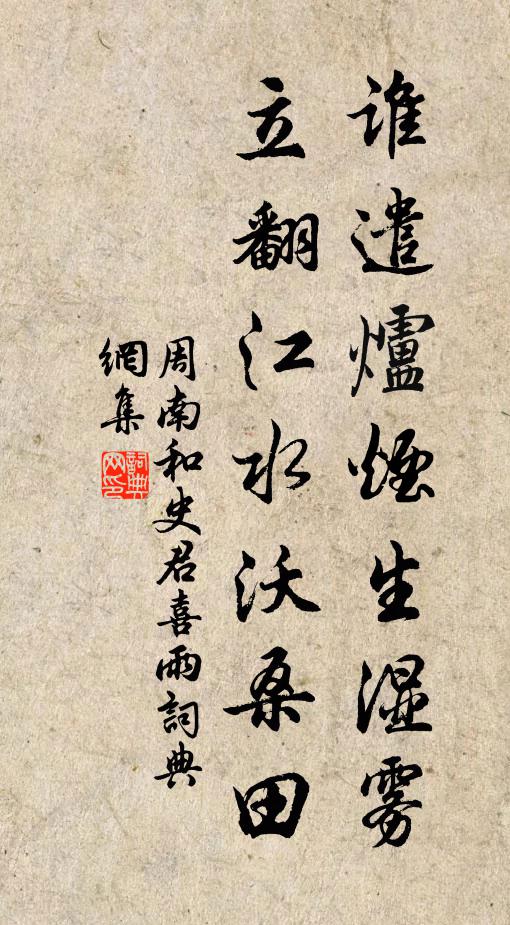 谁遣爐煙生湿雾
立翻江水沃桑田
周南和史君喜雨詞典
網集
詞典網印